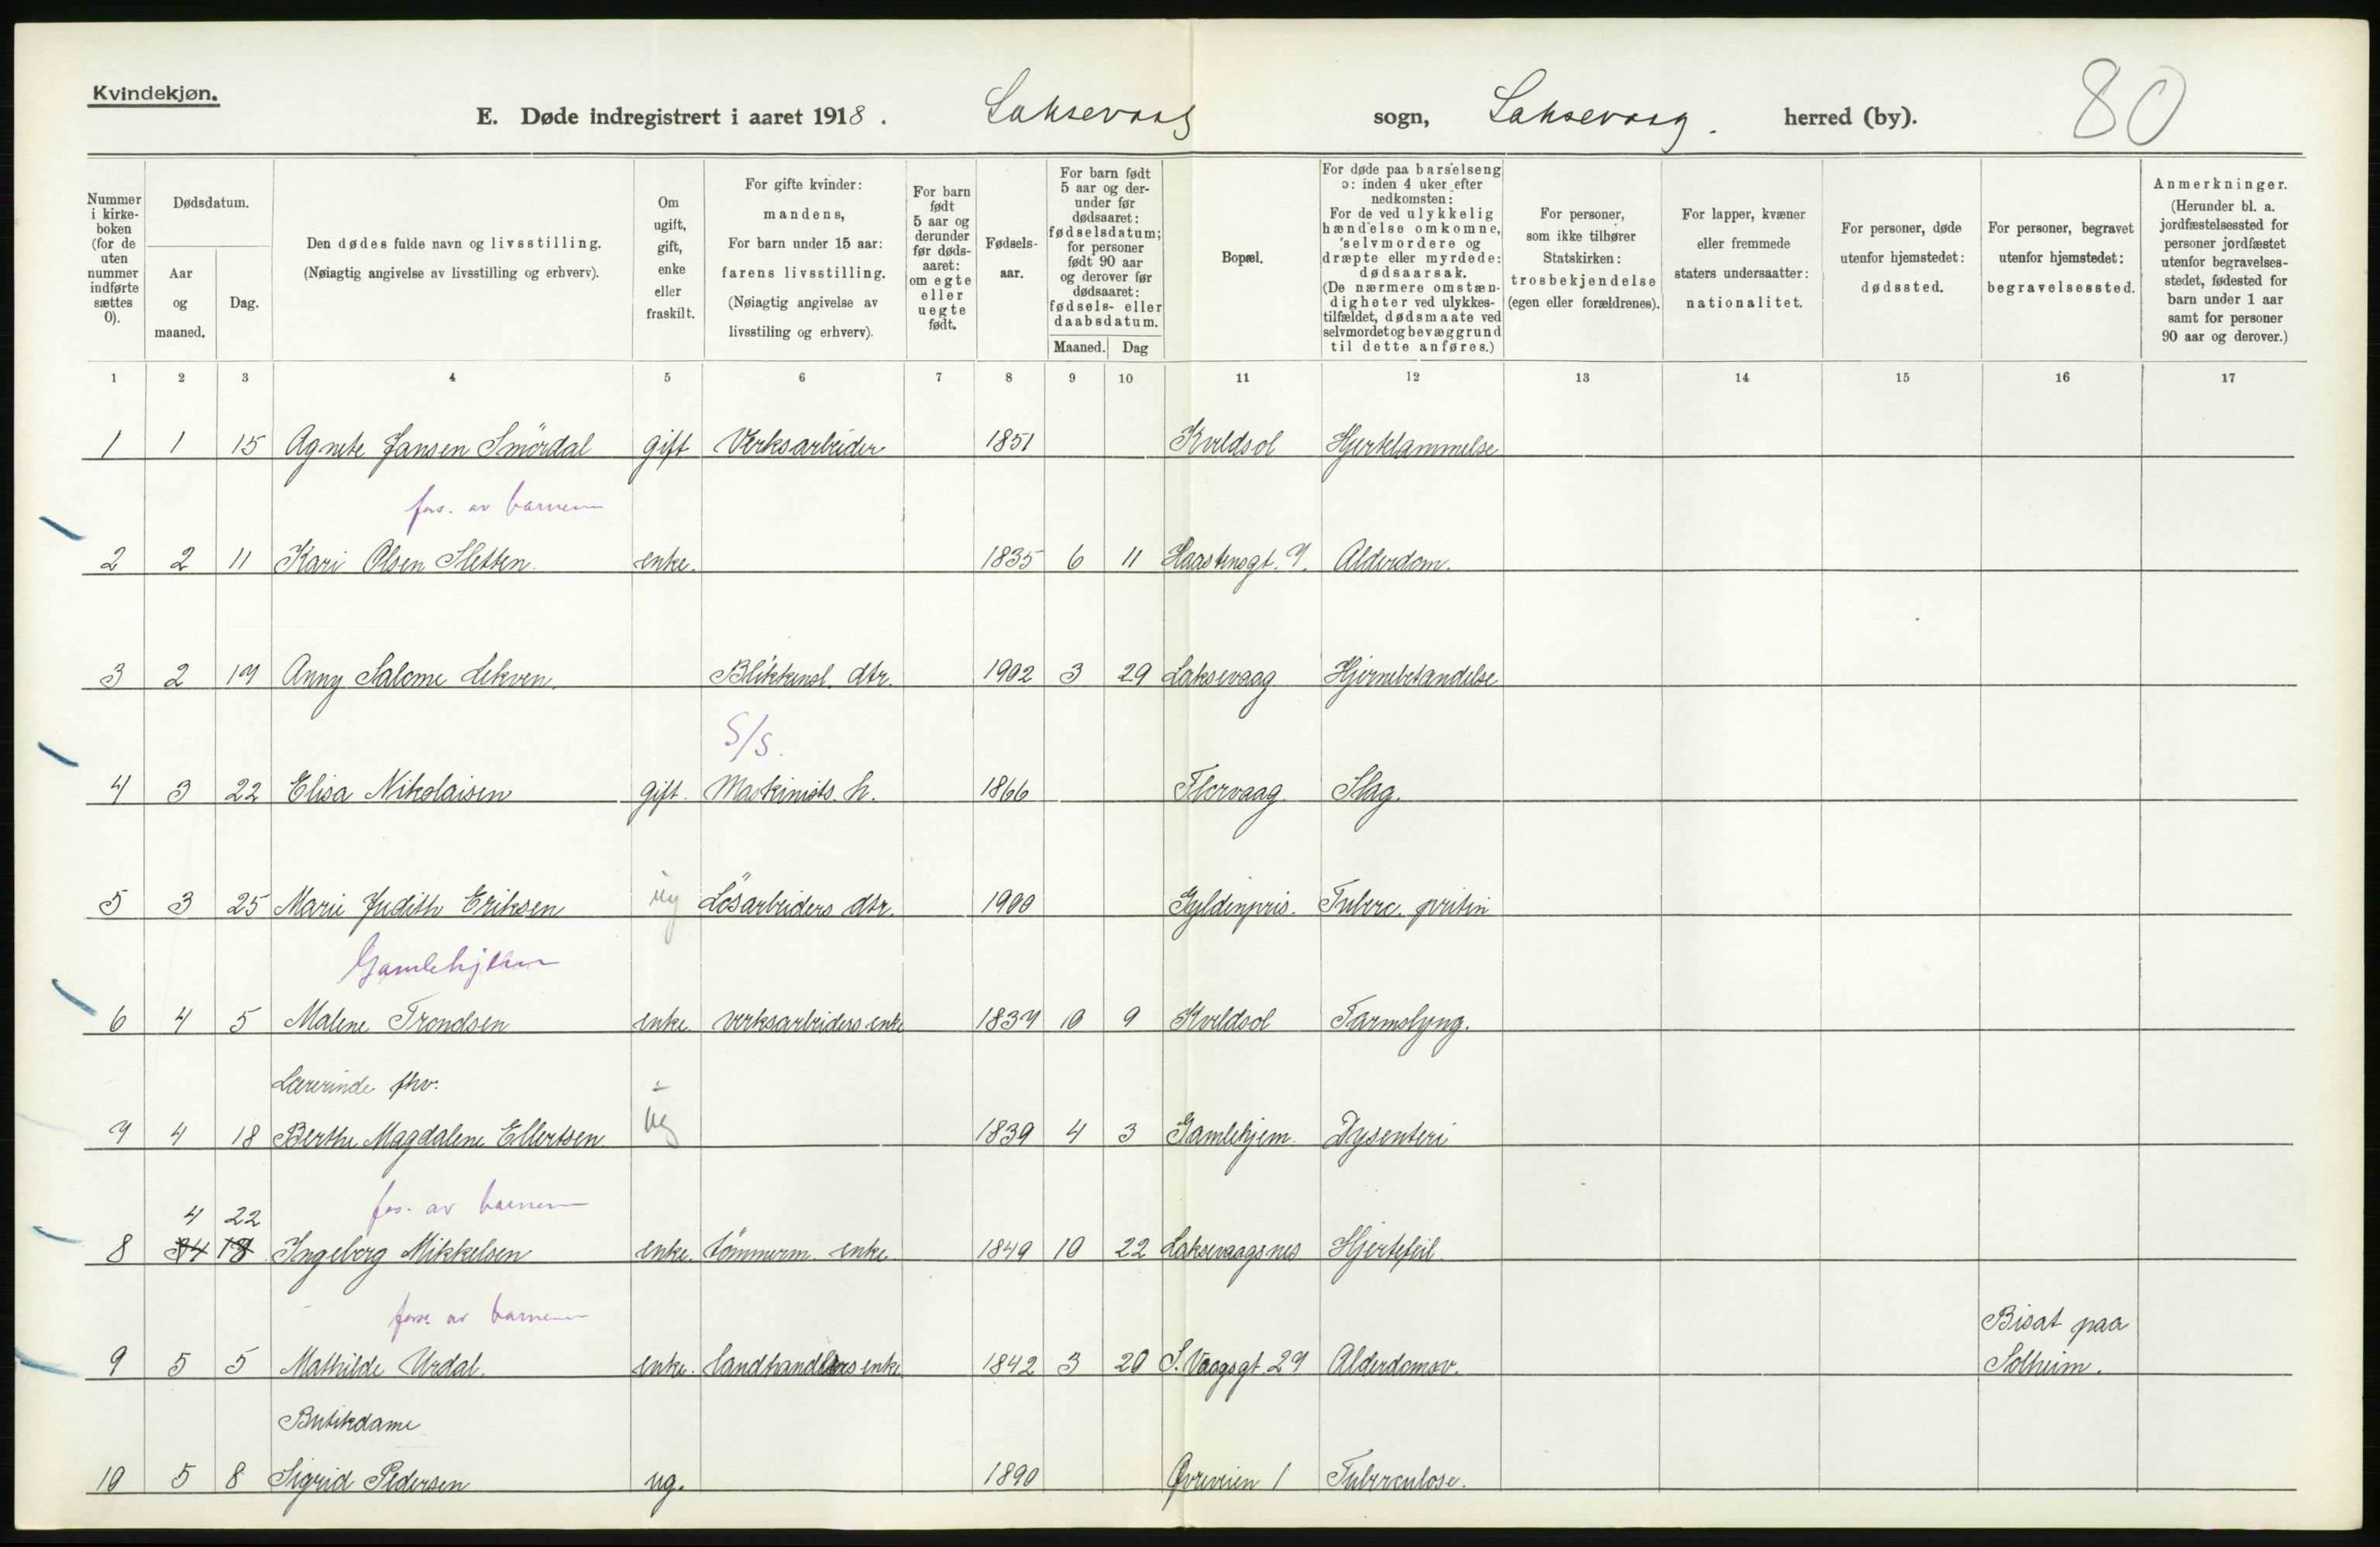 Kvindekjøn.
E. Døde indregistrert i aaret 1918. Laksevaag sogn, Laksevaag. herred (by). 80
Nummer i kirke-boken (for de uten nummer indførte sættes 0).
Dødsdatum.
Aar og maaned.
Dag.
Den dødes fulde navn og livsstilling.
(Nøiagtig angivelse av livsstilling og erhverv).
Om ugift, gift, enke eller fraskilt.
For gifte kvinder: mandens,
For barn under 15 aar: farens livsstilling.
(Nøiagtig angivelse av livsstiling og erhverv).
For barn født 5 aar og derunder før døds-aaret: om egte eller uegte født.
Fødsels-aar.
For barn født 5 aar og der-under før dødsaaret: fødselsdatum; for personer født 90 aar og derover før dødsaaret: fødsels- eller daabsdatum.
Maaned. Dag
Bopæl.
For døde paa barselseng ɔ: inden 4 uker efter nedkomsten:
For de ved ulykkelig hændelse omkomne, selvmordere og dræpte eller myrdede: dødsaarsak.
(De nærmere omstæn-digheter ved ulykkes-tilfældet, dødsmaate ved selvmordet og bevæggrund til dette anføres.)
For personer, som ikke tilhører Statskirken: trosbekjendelse (egen eller forældrenes).
For lapper, kvæner eller fremmede staters undersaatter: nationalitet.
For personer, døde utenfor hjemstedet: dødssted.
For personer, begravet utenfor hjemstedet: begravelsessted.
Anmerkninger.
(Herunder bl. a. jordfæstelsessted for personer jordfæstet utenfor begravelses-stedet, fødested for barn under 1 aar samt for personer 90 aar og derover.)
1 2 3 4 5 6 7 8 9 10 11 12 13 14 15 16 17
1 1 15 Agnete Jansen Smördal gift Verksarbeider 1851 Kveldsol Hjertelammelse
fors. av barnene
2 2 11 Kari Olsen Sletten. enke. 1835 6 11 Haastensgt. 7. Alderdom.
3 2 17 Anny Salome Lekven. Blikkensl. dtr. 1902 3 29 Laksevaag Hjernebetændelse
S/S.
4 3 22 Elisa Nikolaisen gift. Maskinists. h. 1866 Florvaag. Slag.
5 3 25 Marie Judith Eriksen ug Lösarbeiders dtr. 1900 Gyldenpris. Tuberc.
Gamlehjem
6 4 5 Malene Trondsen enke. verksarbeiders enke 1837 10 9 Kveldsol Tarmslyng.
Lærerinde fhv. -
7 4 18 Berthe Magdalene Ellertsen ug 1839 4 3 Gamlehjem. Dysenteri
4 22 fors. av barnene
8 34 18 Ingeborg Mikkelsen enke. tömmerm. enke 1849 10 22 Laksevaagsnes Hjertefeil.
fors. av barnene Bisat paa
9 5 5 Mathilde Urdal. enke. landhandlers enke 1842 3 20 S. Vaagsgt. 27 Alderdomsv. Solheim.
Butikdame
10 5 8 Sigrid Pedersen ug. 1890 1 Tuberculose.